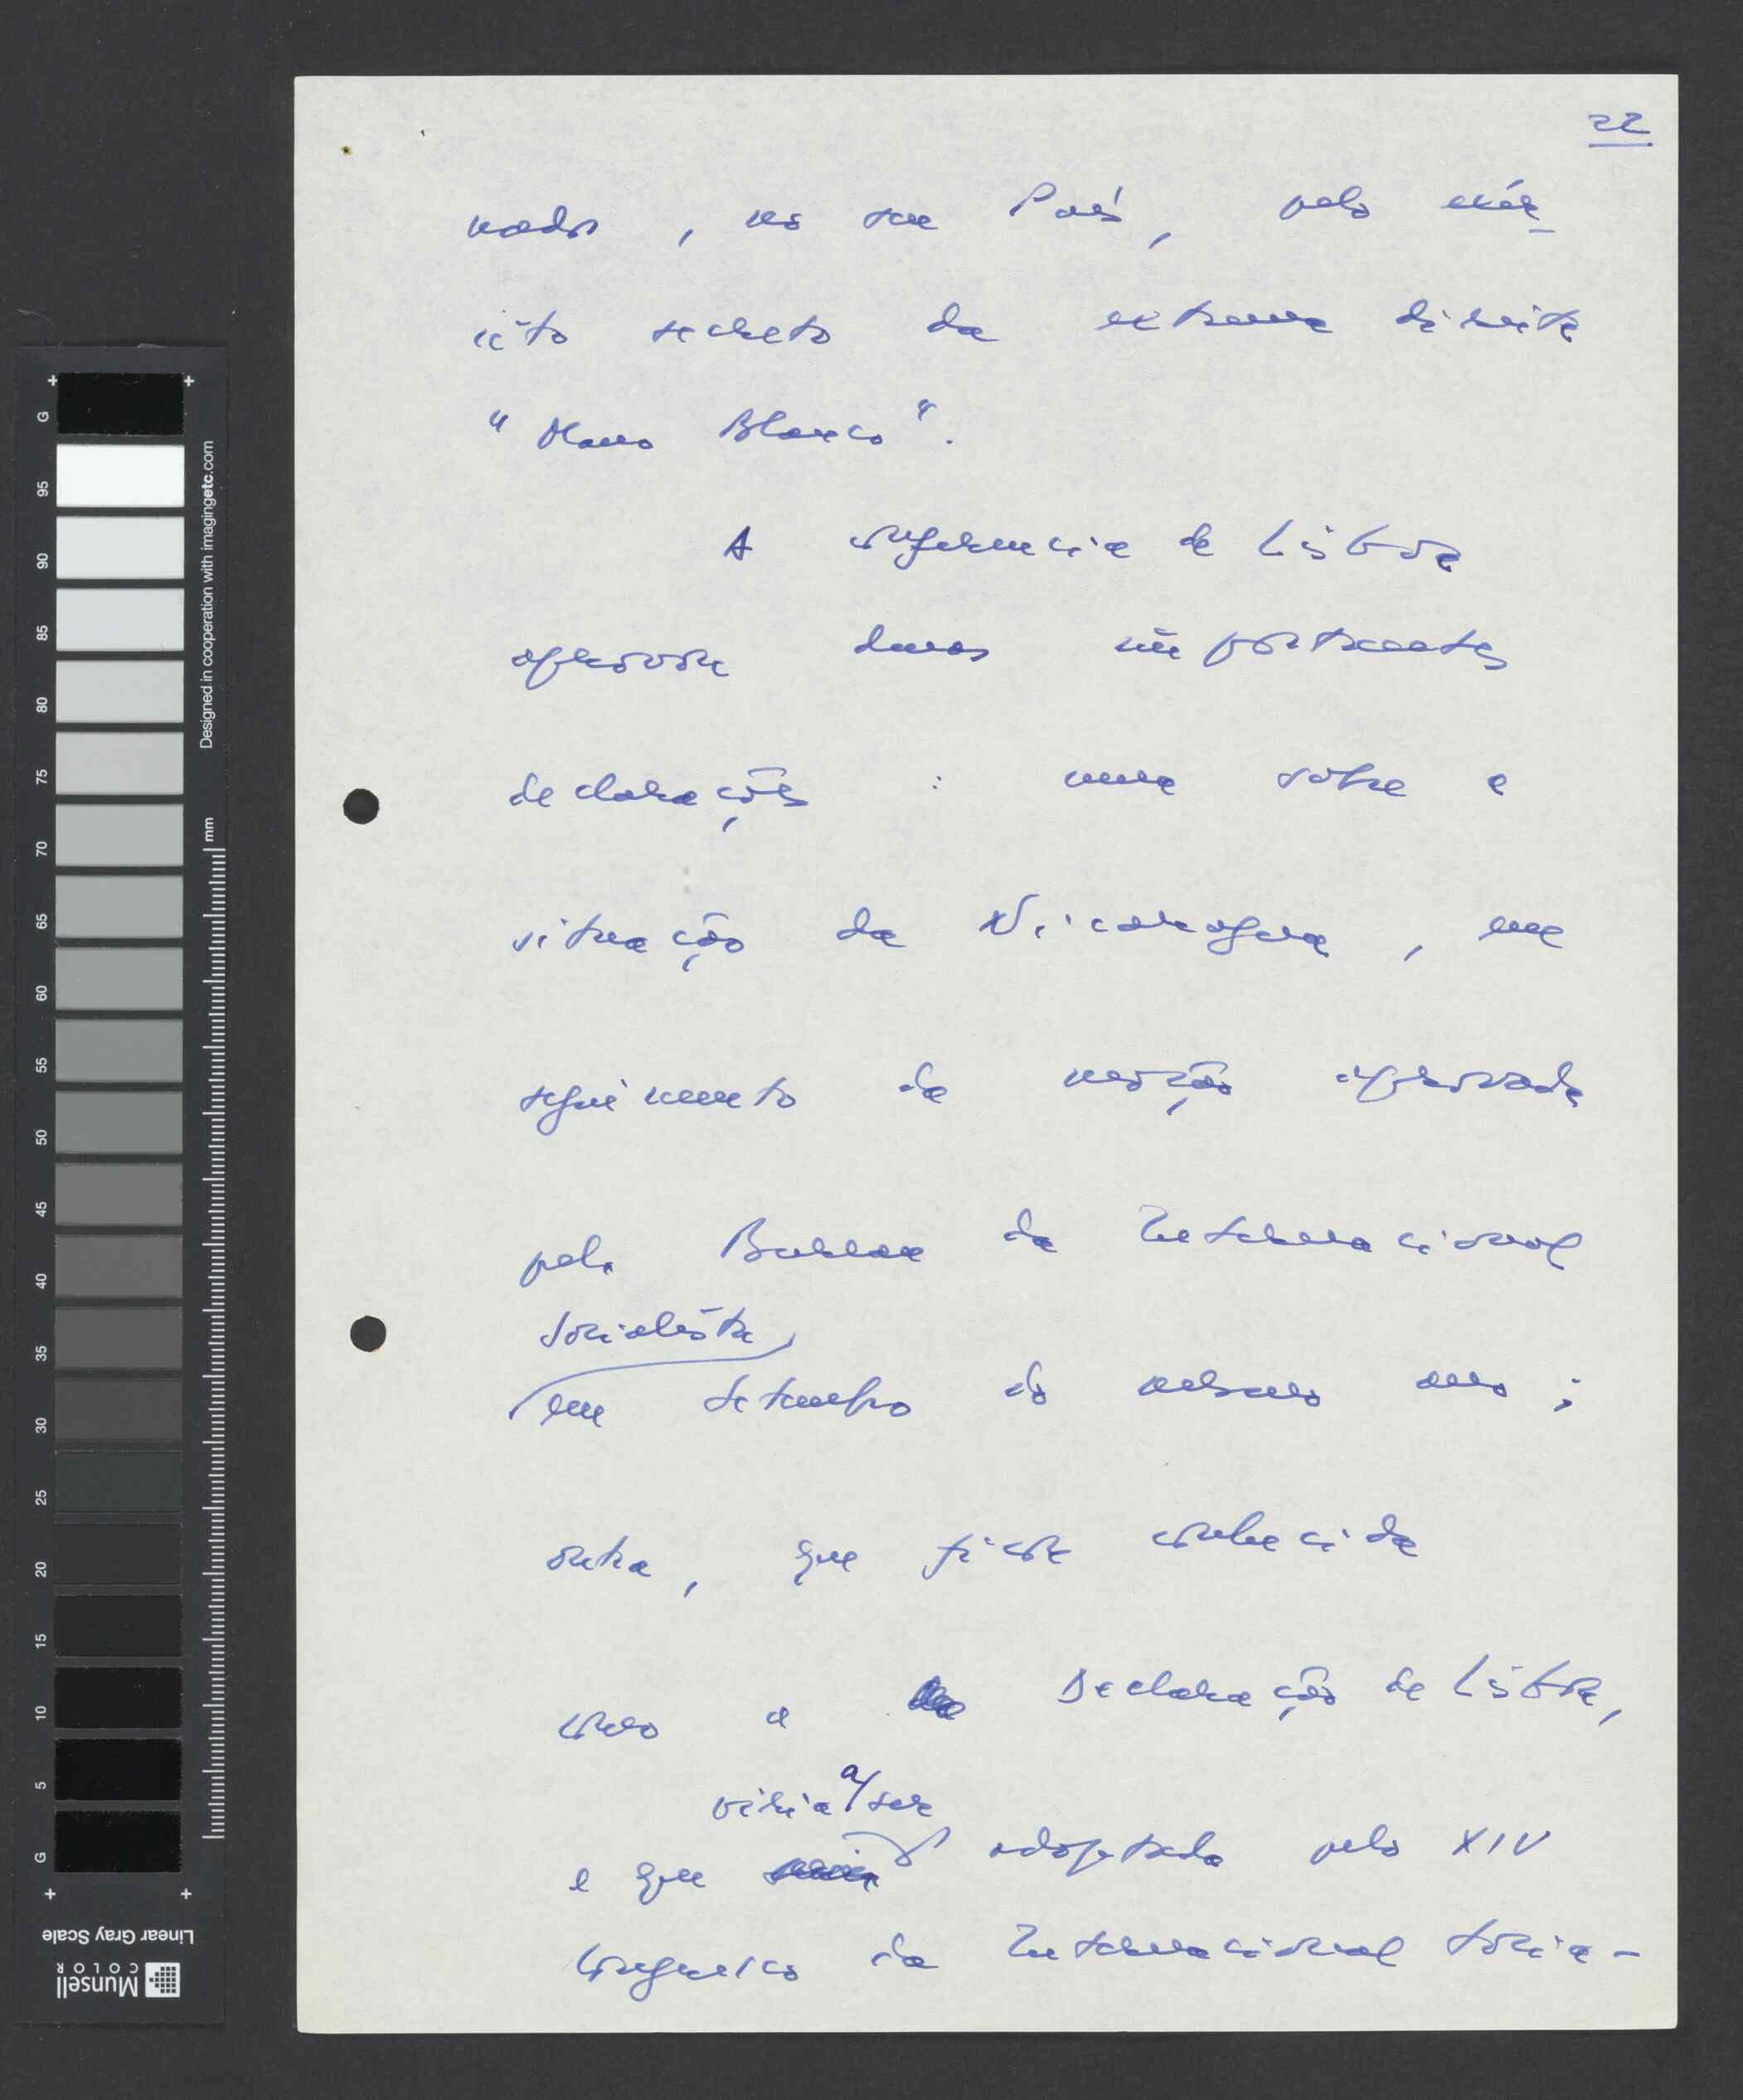 22
nado, no seu País, pelo exér-
cito secreto da extrema direita
"Mano Blanco".
A conferencia de Lisboa
aprovou duas importantes
declarações : uma sobre a
situação da Nicaragua, em
seguimento da moção aprovada
pelo Bureau da Internacional
Socialista
em Setembro do mesmo ano ;
outra, que ficou conhecida
como a Declaração de Lisboa,
viria a ser
e que adoptada pelo XIV
Congresso da Internacional Socia-
G 95 90 85 80 75 70 65 60 55 50 45 40 35 30 25 20 15 10 5 G
Designed in cooperation with imagingetc.com
mm
Linear Gray Scale
Munsell
COLOR